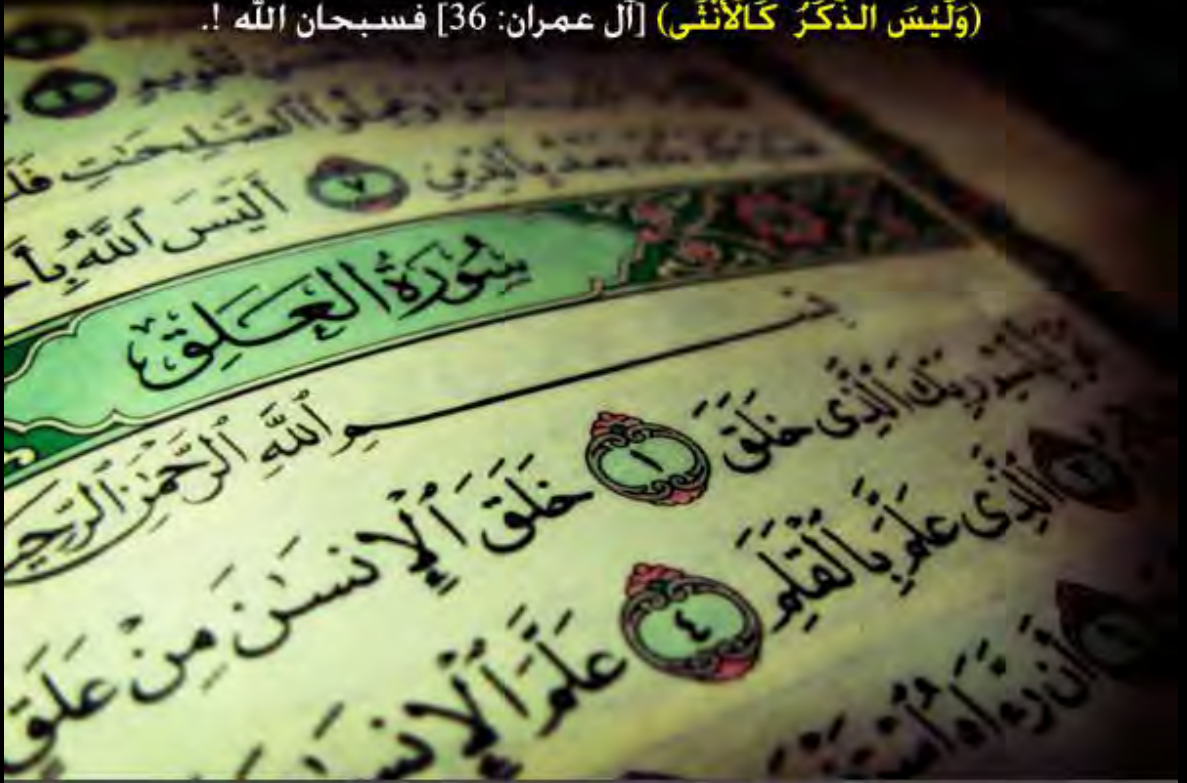 (وَلَيْسَ الذَّكَرُ كَالْأُنْثَى) [آل عمران: 36] فسبحان الله !.
ٱلصَّٰلِحَٰتِ
٧ أَلَيْسَ ٱللَّهُ
سُورَةُ العَلَقِ
بِسْمِ ٱللَّهِ ٱلرَّحْمَٰنِ
رَبِّكَ ٱلَّذِى خَلَقَ ١ خَلَقَ ٱلْإِنسَٰنَ مِنْ عَلَقٍ
ٱلَّذِى عَلَّمَ بِٱلْقَلَمِ ٤ عَلَّمَ ٱلْإِنسَٰنَ
أَن رَّءَاهُ